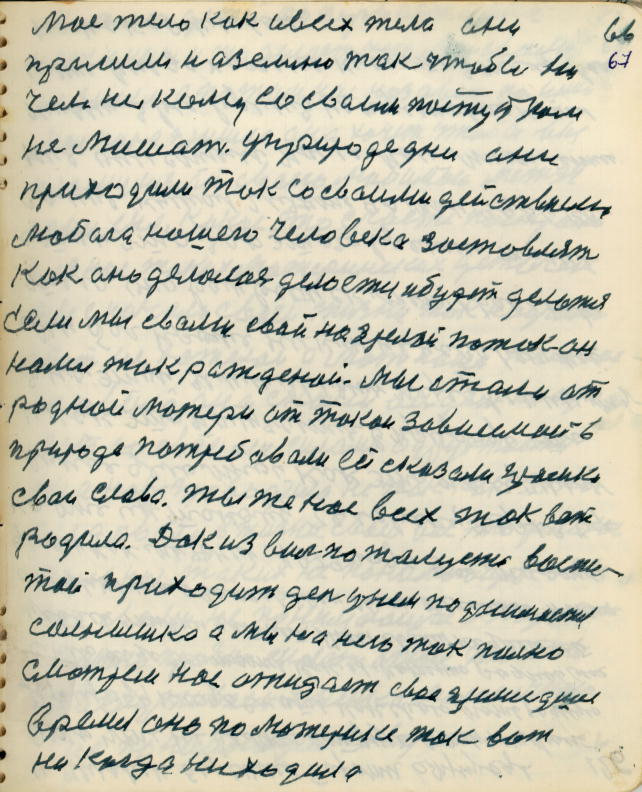 66
67
Мое тело как и всех тела они
пришли на землю так чтобы ни
чем не кому со сваим поступком
не мишат. У природе дни они
приходили так со своими действиями
любога нашего человека заставлят
как оно делалося делаети и будит делатя
Если мы свами свай на
поток он
нами так рожденой. Мы стали от
родной матери от такой зависимой в
природе потребовали ей сказали
сваи слова. Ты же нас всех так вот
родила. Дак из вал пожалуста воспи-
тай приходит ден
днем поднимается
солнышко а мы на него так полно
смотрем нас ожидает свае
время оно по матерински так вот
ни когда ни ходила